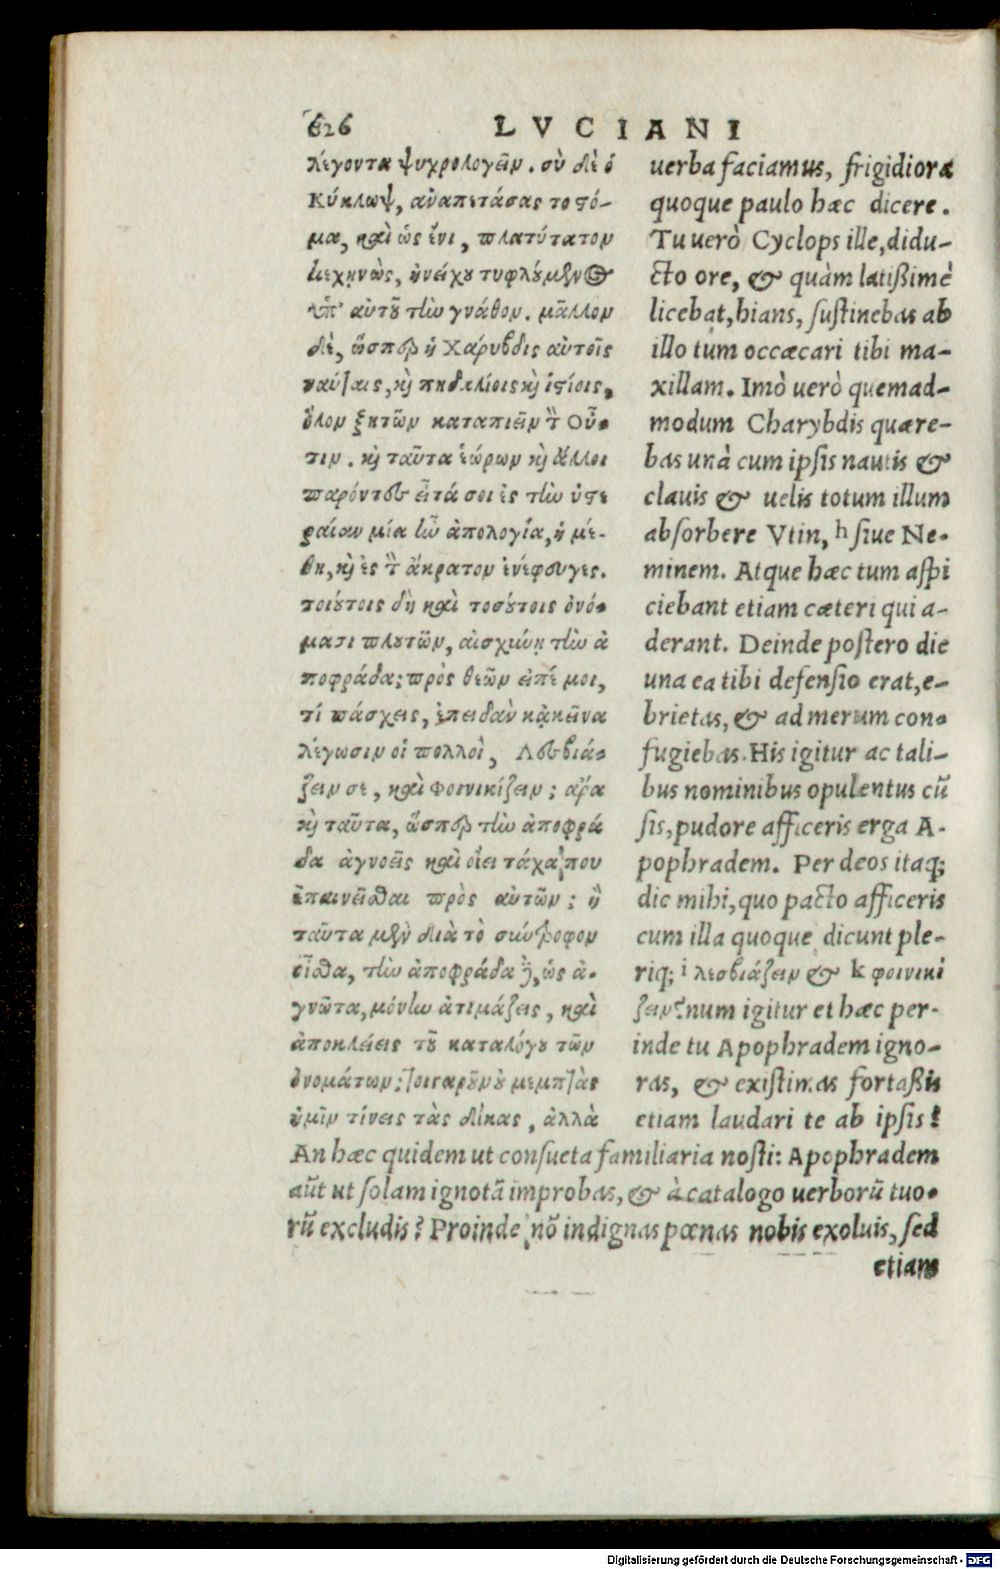 626 LVCIANI
λέγοντα ψυχρολογεῖν. σὺ δὲ ὁ
Κύκλωψ, ἀναπετάσας το στό-
μα, καὶ ὡς ἔνι, πλατύτατον
κεχηνὼς, ἠνείχου τυφλούμενος
ὑπ' αὐτοῦ τὴν γνάθον. μᾶλλον
δὲ, ὥσπερ ἡ Χάρυβδις αὐτοῖς
ναύταις, καὶ πηδαλίοις καὶ ἱστίοις,
ὅλον ζητῶν καταπιεῖν τὸν Οὖ-
τιν. καὶ ταῦτα ἑώρων καὶ ἄλλοι
παρόντες εἶτά σοι ἐς τὴν ὑστε
ραίαν μία ἦν ἀπολογία, ἡ μέ-
θη, καὶ ἐς τὸν ἄκρατον ἐνέφευγες.
τοιούτοις δὴ καὶ τοσούτοις ὀνό-
μασι πλουτῶν, αἰσχύνῃ τὴν ἀ
ποφράδα; πρὸς θεῶν εἰπέ μοι,
τί πάσχεις, ἐπειδὰν κἀκεῖνα
λέγωσιν οἱ πολλοὶ, Λεσβιά-
ζειν σε, καὶ Φοινικίζειν; ἆρα
καὶ ταῦτα, ὥσπερ τὴν ἀποφρά
δα ἀγνοεῖς καὶ οἴει τάχα που
ἐπαινεῖσθαι πρὸς αὐτῶν; ἢ
ταῦτα μὲν διὰ τὸ σύντροφον
οἶσθα, τὴν ἀποφράδα δὲ, ὡς ἀ-
γνῶτα, μόνην ἀτιμάζεις, καὶ
ἀποκλείεις τοῦ καταλόγου τῶν
ὀνομάτων; τοιγαροῦν οὐ μεμπτὰς
ἡμῖν τίνεις τὰς δίκας, ἀλλὰ
uerba faciamus, frigidiora
quoque paulo hæc dicere.
Tu uerò Cyclops ille, didu-
cto ore, & quàm latißimè
licebat, hians, sustinebas ab
illo tum occæcari tibi ma-
xillam. Imò uerò quemad-
modum Charybdis quære-
bas unà cum ipsis nautis &
clauis & uelis totum illum
absorbere Vtin, h siue Ne-
minem. Atque hæc tum aspi
ciebant etiam cæteri qui a-
derant. Deinde postero die
una ea tibi defensio erat, e-
brietas, & ad merum con-
fugiebas. His igitur ac tali-
bus nominibus opulentus cū
sis, pudore afficeris erga A-
pophradem. Per deos itaq;
dic mihi, quo pacto afficeris
cum illa quoque dicunt ple-
riq; i λεσβιάζειν & k φοινικί
ζειν? num igitur et hæc per-
inde tu Apophradem igno-
ras, & existimas fortaßis
etiam laudari te ab ipsis?
An hæc quidem ut consueta familiaria nosti: Apophradem
aūt ut solam ignotā improbas, & à catalogo uerborū tuo-
rū excludis? Proinde nō indignas pœnas nobis exoluis, sed
etiam
Digitalisierung gefördert durch die Deutsche Forschungsgemeinschaft - DFG